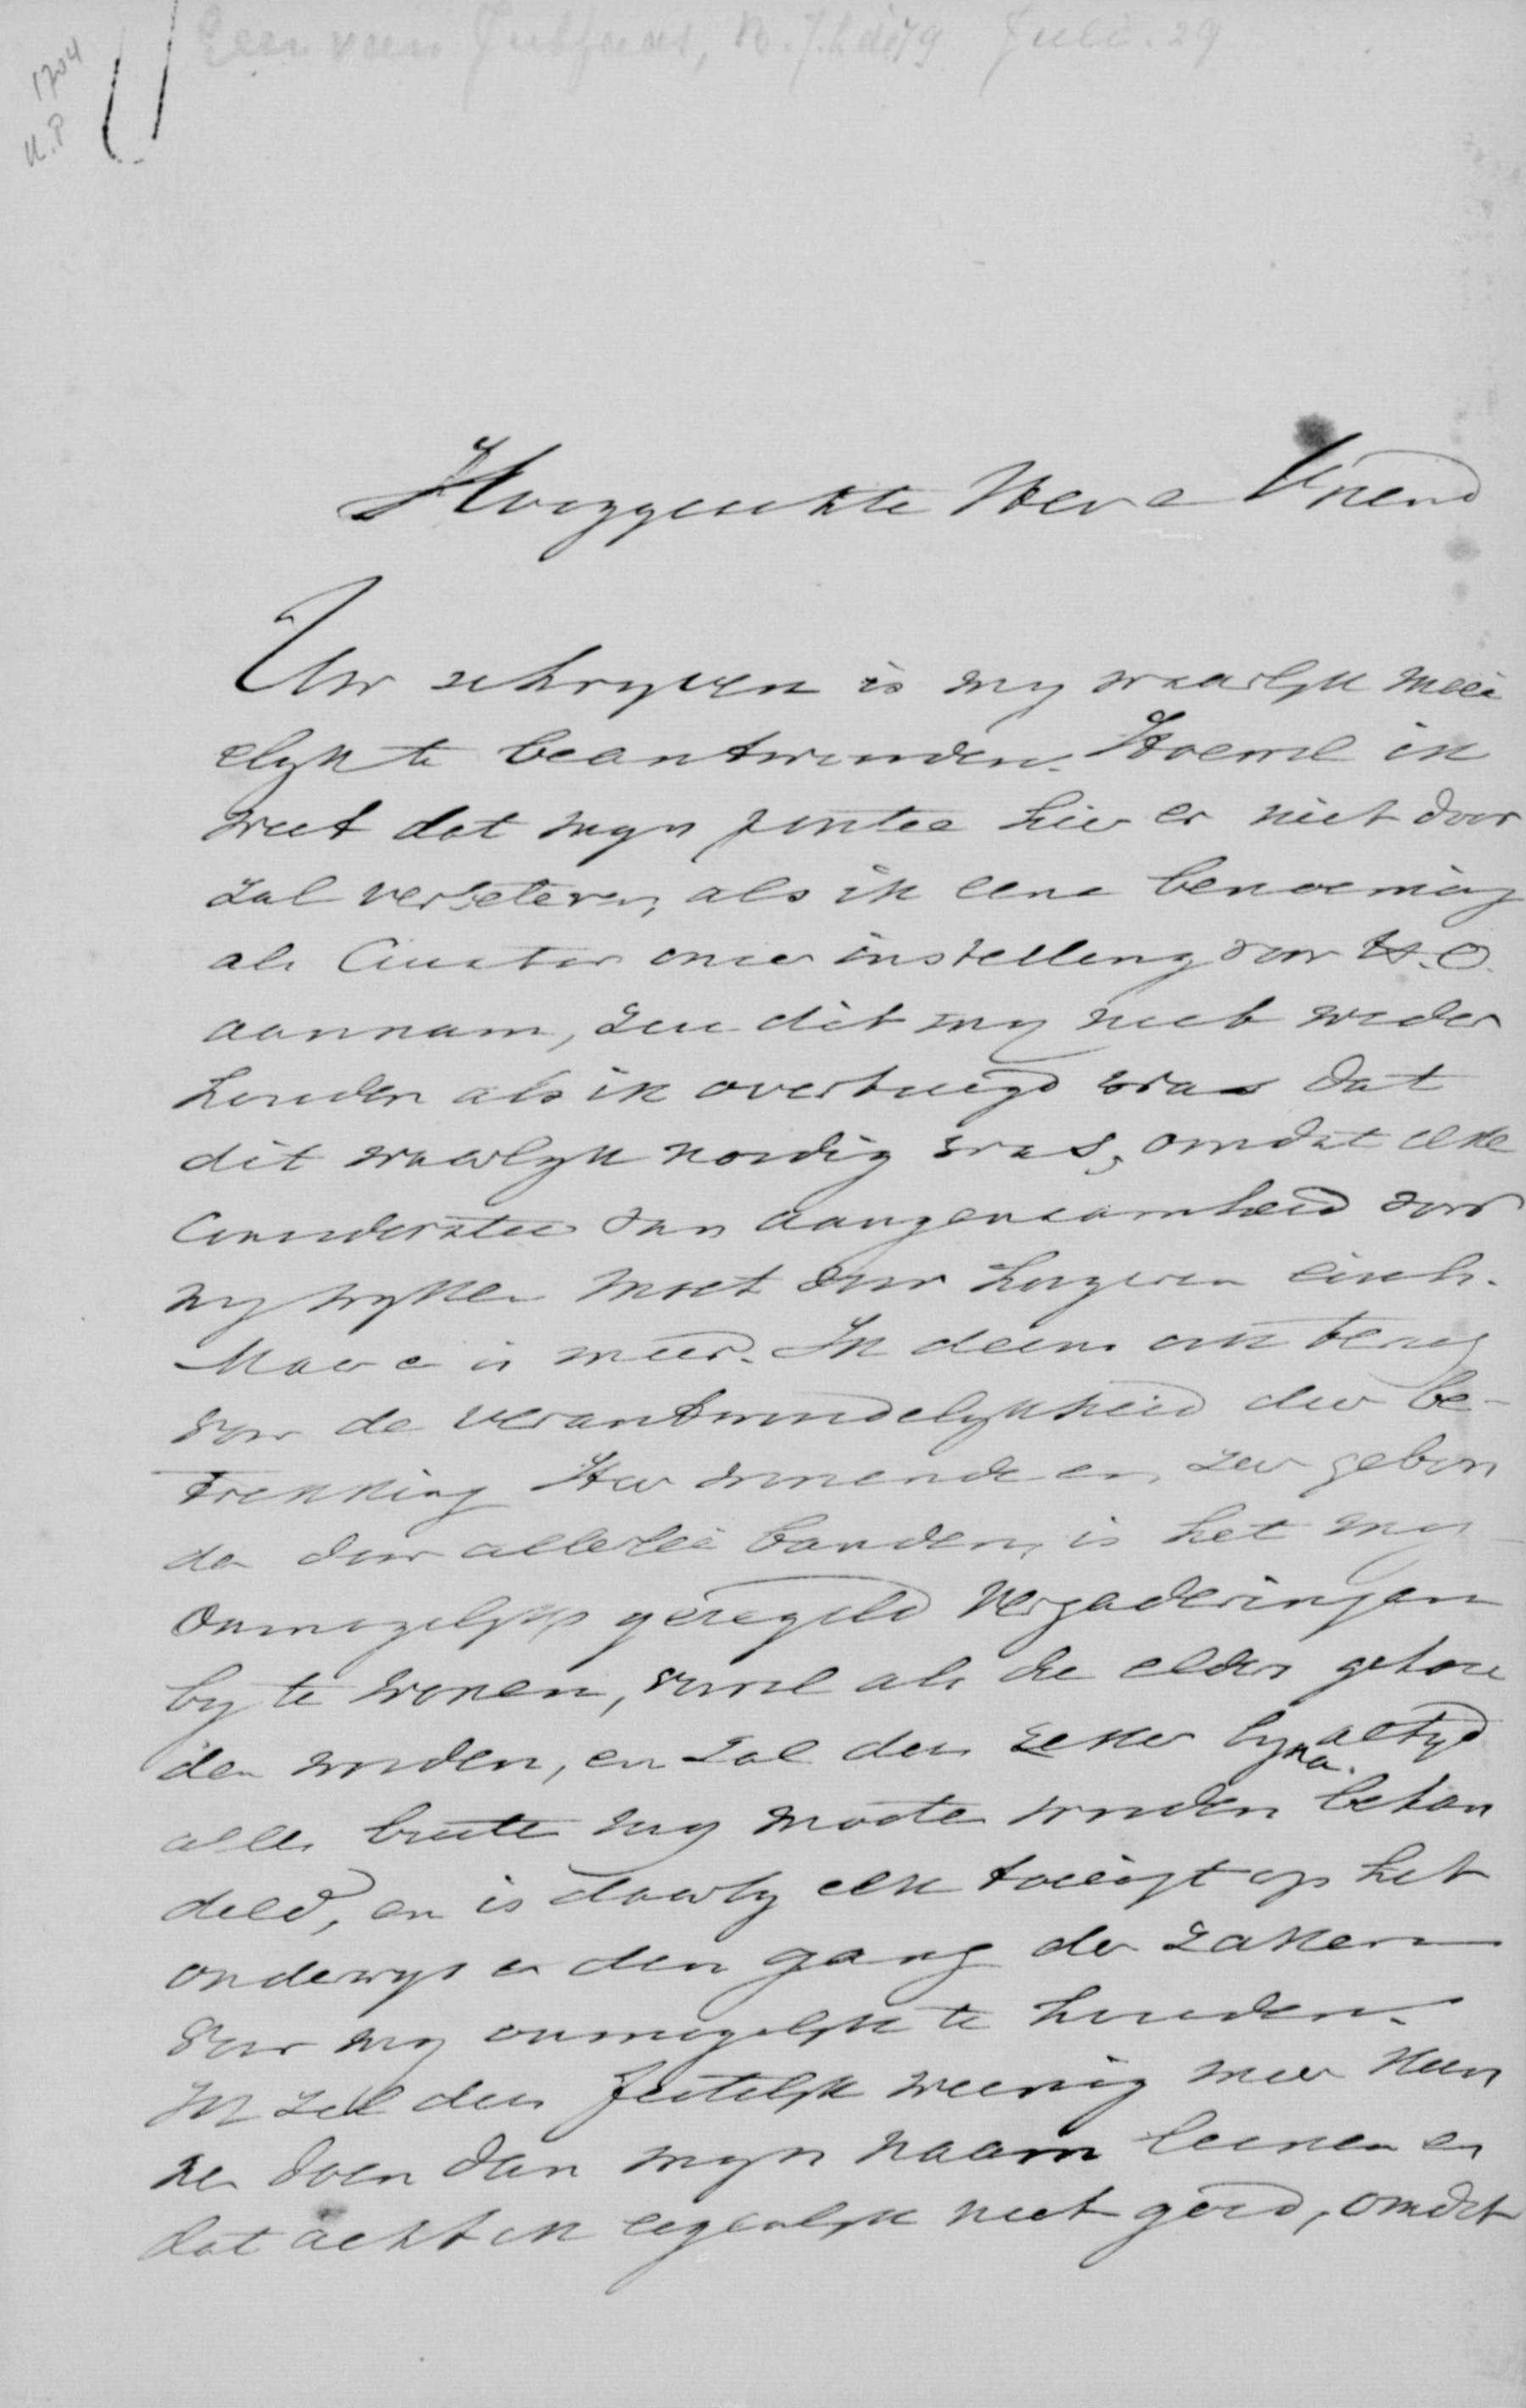 1704
K.P
Lear van Jutfaas, R. J. L. de 79 Juli. 29
Hooggeachte Heer e Vriend
Uw schryven is my waarlyk moei
elyk te beantwoorden. Hoewel ik
weet dat myn positie hier er niet door
zal verbeteren, als ik eene benoeming
als Curator onzer instelling voor H.O.
aannam, zou dit my niet weder
houden als ik overtuigd was dat
dit waarlyk noodig was, omdat elke
consideratie van aangenaamheid voor
my wyken moet voor hoogeren eisch.
Maar er is meer. Ik deins ook terug
voor de verantwoordelykheid der be-
trekking. Hier wonende en zeer gebon
den door allerlei banden, is het my
onmogelyk geregeld vergaderingen
by te wonen, vooral als die elders gehou
den worden, en zal dus zeker byna altyd
alles buiten my moeten worden behan
deld, en is daarby elk toezigt op het
onderwys en den gang der zaken
voor my onmogelyk te houden.
Ik zal dus feitelyk weinig meer kun
nen doen dan myn naam leenen en
dat acht ik eigenlyk niet goed, omdat